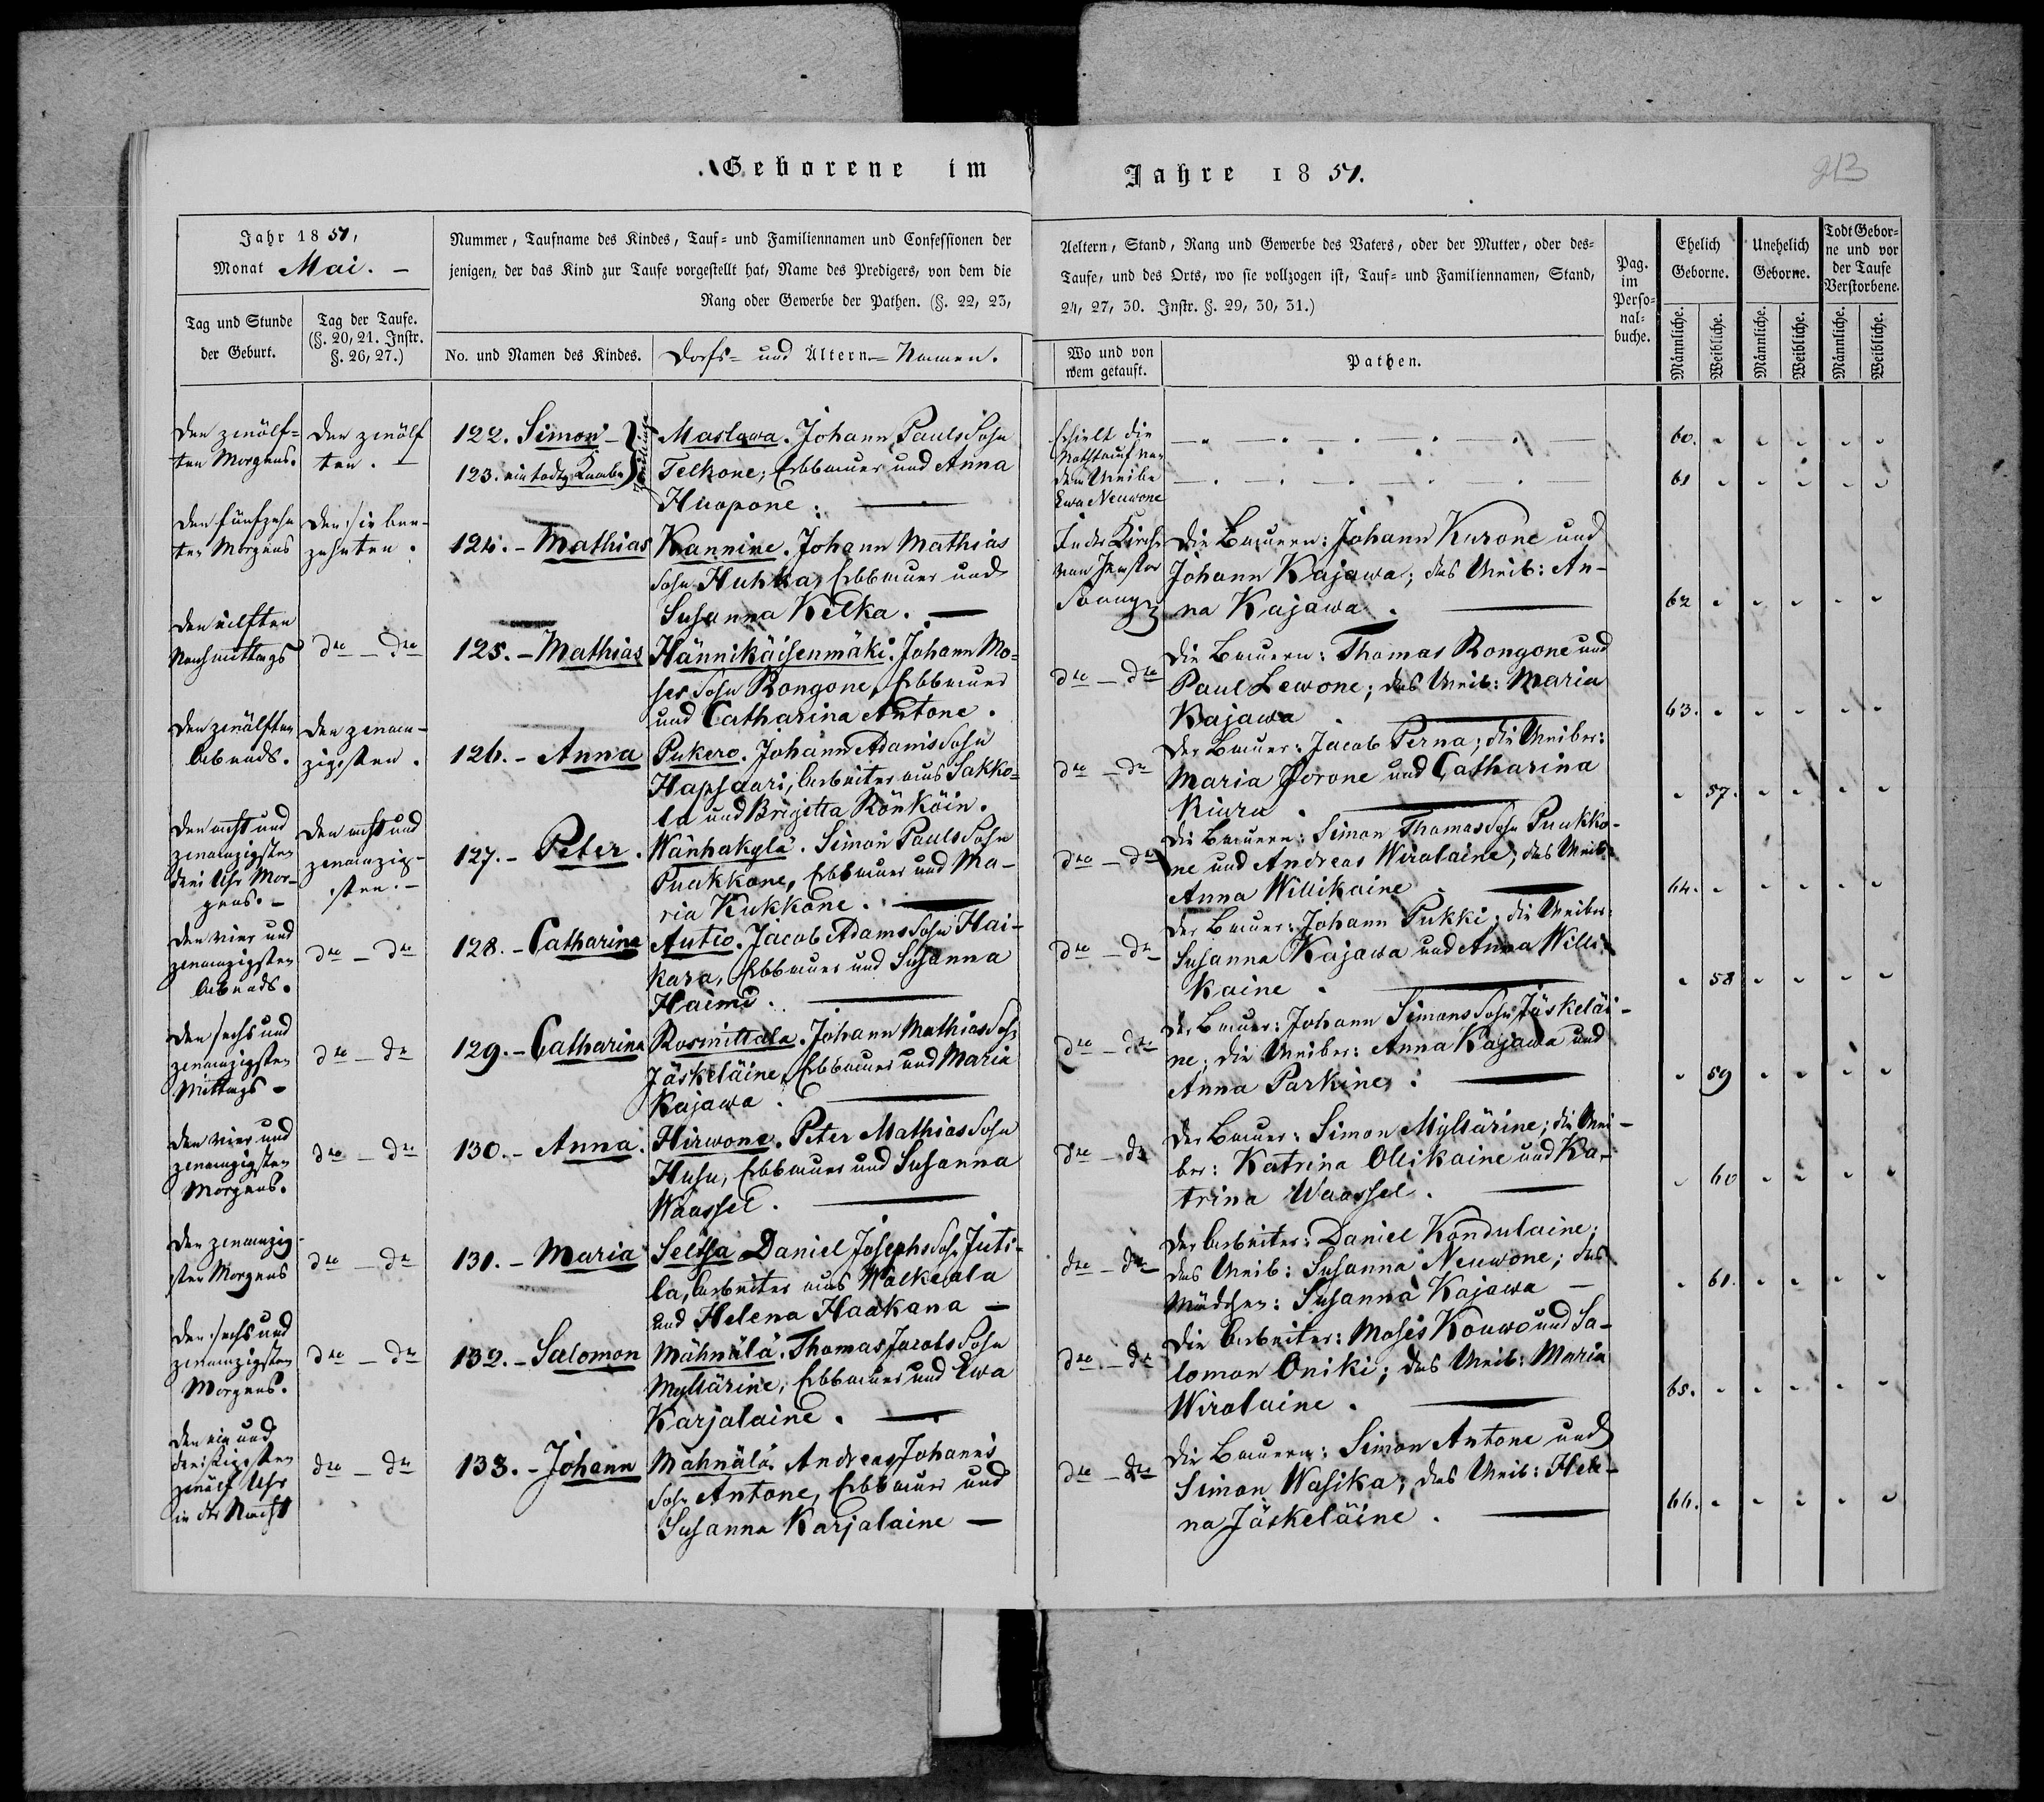 Geborene im
Jahre 1851.
213
Jahr 1851,
Monat Mai. –
Tag und Stunde
der Geburt.
Tag der Taufe.
(§. 20, 21. Instr.
§. 26, 27.)
Nummer, Taufname des Kindes, Tauf- und Familiennamen und Confessionen der
jenigen, der das Kind zur Taufe vorgestellt hat, Name des Predigers, von dem die
Rang oder Gewerbe der Pathen. (§. 22, 23,
No. und Namen des Kindes.
Dorfs- und Ältern-Namen.
Aeltern, Stand, Rang und Gewerbe des Vaters, oder der Mutter, oder des-
Taufe, und des Orts, wo sie vollzogen ist, Tauf- und Familiennamen, Stand,
24, 27, 30. Instr. §. 29, 30, 31.)
Wo und von
wem getauft.
Pathen.
Pag.
im
Perso-
nal-
buche.
Ehelich
Geborne.
Unehelich
Geborne.
Todt Gebor-
ne und vor
der Taufe
Verstorbene.
Männliche.
Weibliche.
Männliche.
Weibliche.
Männliche.
Weibliche.
Den zwölf-
ten Morgens.
Den zwölf
ten. –
122. Simon –
123. ein todter Knabe
Zwillinge
Maslawa. Johann Pauls Sohn
Telkone; Erbbauer und Anna
Huopone:
Erhielt die
Nothtauf von
dem Weibe
Ewa Neuwone
60.
61
Den fünfzehn
ten Morgens
Den sieben-
zehnten.
124. – Mathias
Kannine. Johann Mathias
Sohn Huhka, Erbbauer und
Susanna Kelka.
In der Kirche
von Pastor
Die Bauern: Johann Kurone und
Johann Kajawa; das Weib: An-
na Kajawa.
62
Den eilften
Nachmittags
dto – dto
125. – Mathias
Hännikäisenmäki. Johann Mo-
ses Sohn Rongone, Erbbauer
und Catharina Antone.
dto – dto
Die Bauern: Thomas Rongone und
Paul Lewone; das Weib: Maria
Kajawa
63.
Den zwölften
Abends.
Den zwan-
zigsten.
126. – Anna
Pukero. Johann Adams Sohn
Hapsaari, Arbeiter aus Sakko-
la und Brigitta Rönköin.
dto – dto
Der Bauer: Jacob Perna; die Weiber:
Maria Jorone und Catharina
Kiuru
57.
Den acht und
zwanzigsten
drei Uhr Mor-
gens. –
Den acht und
zwanzig-
sten. –
127. – Peter.
Wanhakylä. Simon Pauls Sohn
Puukkone, Erbbauer und Ma-
ria Kukkone.
dto – dto
Die Bauern: Simon Thomas Sohn Puukko-
ne und Andreas Wirolaine; das Weib:
Anna Willikaine
64.
Den vier und
zwanzigsten
Abends.
dto – dto
128. – Catharina
Autio. Jacob Adams Sohn Hai-
kara, Erbbauer und Susanna
Haimi.
dto – dto
Der Bauer: Johann Pukki; die Weiber:
Susanna Kajawa und Anna Willi-
kaine
58
Den sechs und
zwanzigsten
Mittags –
dto – dto
129. – Catharina
Rosmittala. Johann Mathias Sohn
Jäskeläine, Erbbauer und Maria
Kajawa.
dto – dto
Der Bauer: Johann Simons Sohn Jäskeläi-
ne; die Weiber: Anna Kajawa und
Anna Parkine:
59
Den vier und
zwanzigsten
Morgens.
dto – dto
130. – Anna.
Hirwone. Peter Mathias Sohn
Husu, Erbbauer und Susanna
Waassel.
dto – dto
Der Bauer: Simon Myllärine; die Wei-
ber: Katrina Ollikaine und Ka-
trina Waassel.
60
Den zwanzig-
sten Morgens
dto – dto
131. – Maria
Seltsa Daniel Josephs Sohn Juti-
la, Arbeiter aus Walkeala
und Helena Haakana –
dto – dto
Der Arbeiter: Daniel Kondulaine;
das Weib: Susanna Neuwone; das
Mädchen: Susanna Kajawa –
61.
Den sechs und
zwanzigsten
Morgens.
dto – dto
132. – Salomon
Mähnälä. Thomas Jacobs Sohn
Myllärine, Erbbauer und Ewa
Karjalaine.
dto – dto
Die Arbeiter: Moses Kouwo und Sa-
lomon Oniki; das Weib: Maria
Wirolaine.
65.
Den ein und
dreißigsten
zwölf Uhr
in der Nacht
dto – dto
133. – Johann
Mähnälä. Andreas Johanns
Sohn Antone, Erbbauer und
Susanna Karjalaine –
dto – dto
Die Bauern: Simon Antone und
Simon Wasika; das Weib: Hele-
na Jäskeläine.
66.